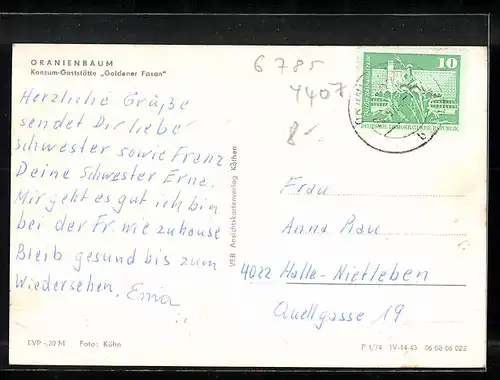 ORANIENBAUM
Konsum-Gaststätte „Goldener Fasan“
Herzliche Grüße
sendet Dir liebe
schwester sowie Franz
Deine Schwester Erna.
Mir geht es gut ich bin
bei der Fr. wie zuhause
Bleib gesund bis zum
Wiedersehen. Erna
EVP -,20 M Foto: Kühn
VEB Ansichtskartenverlag Köthen
6785
4407
8-
10
DEUTSCHE DEMOKRATISCHE REPUBLIK
Frau
Anna Rau
4022 Halle-Nietleben
Quellgasse 19
P 1/74 IV-14-45 06 08 06 022